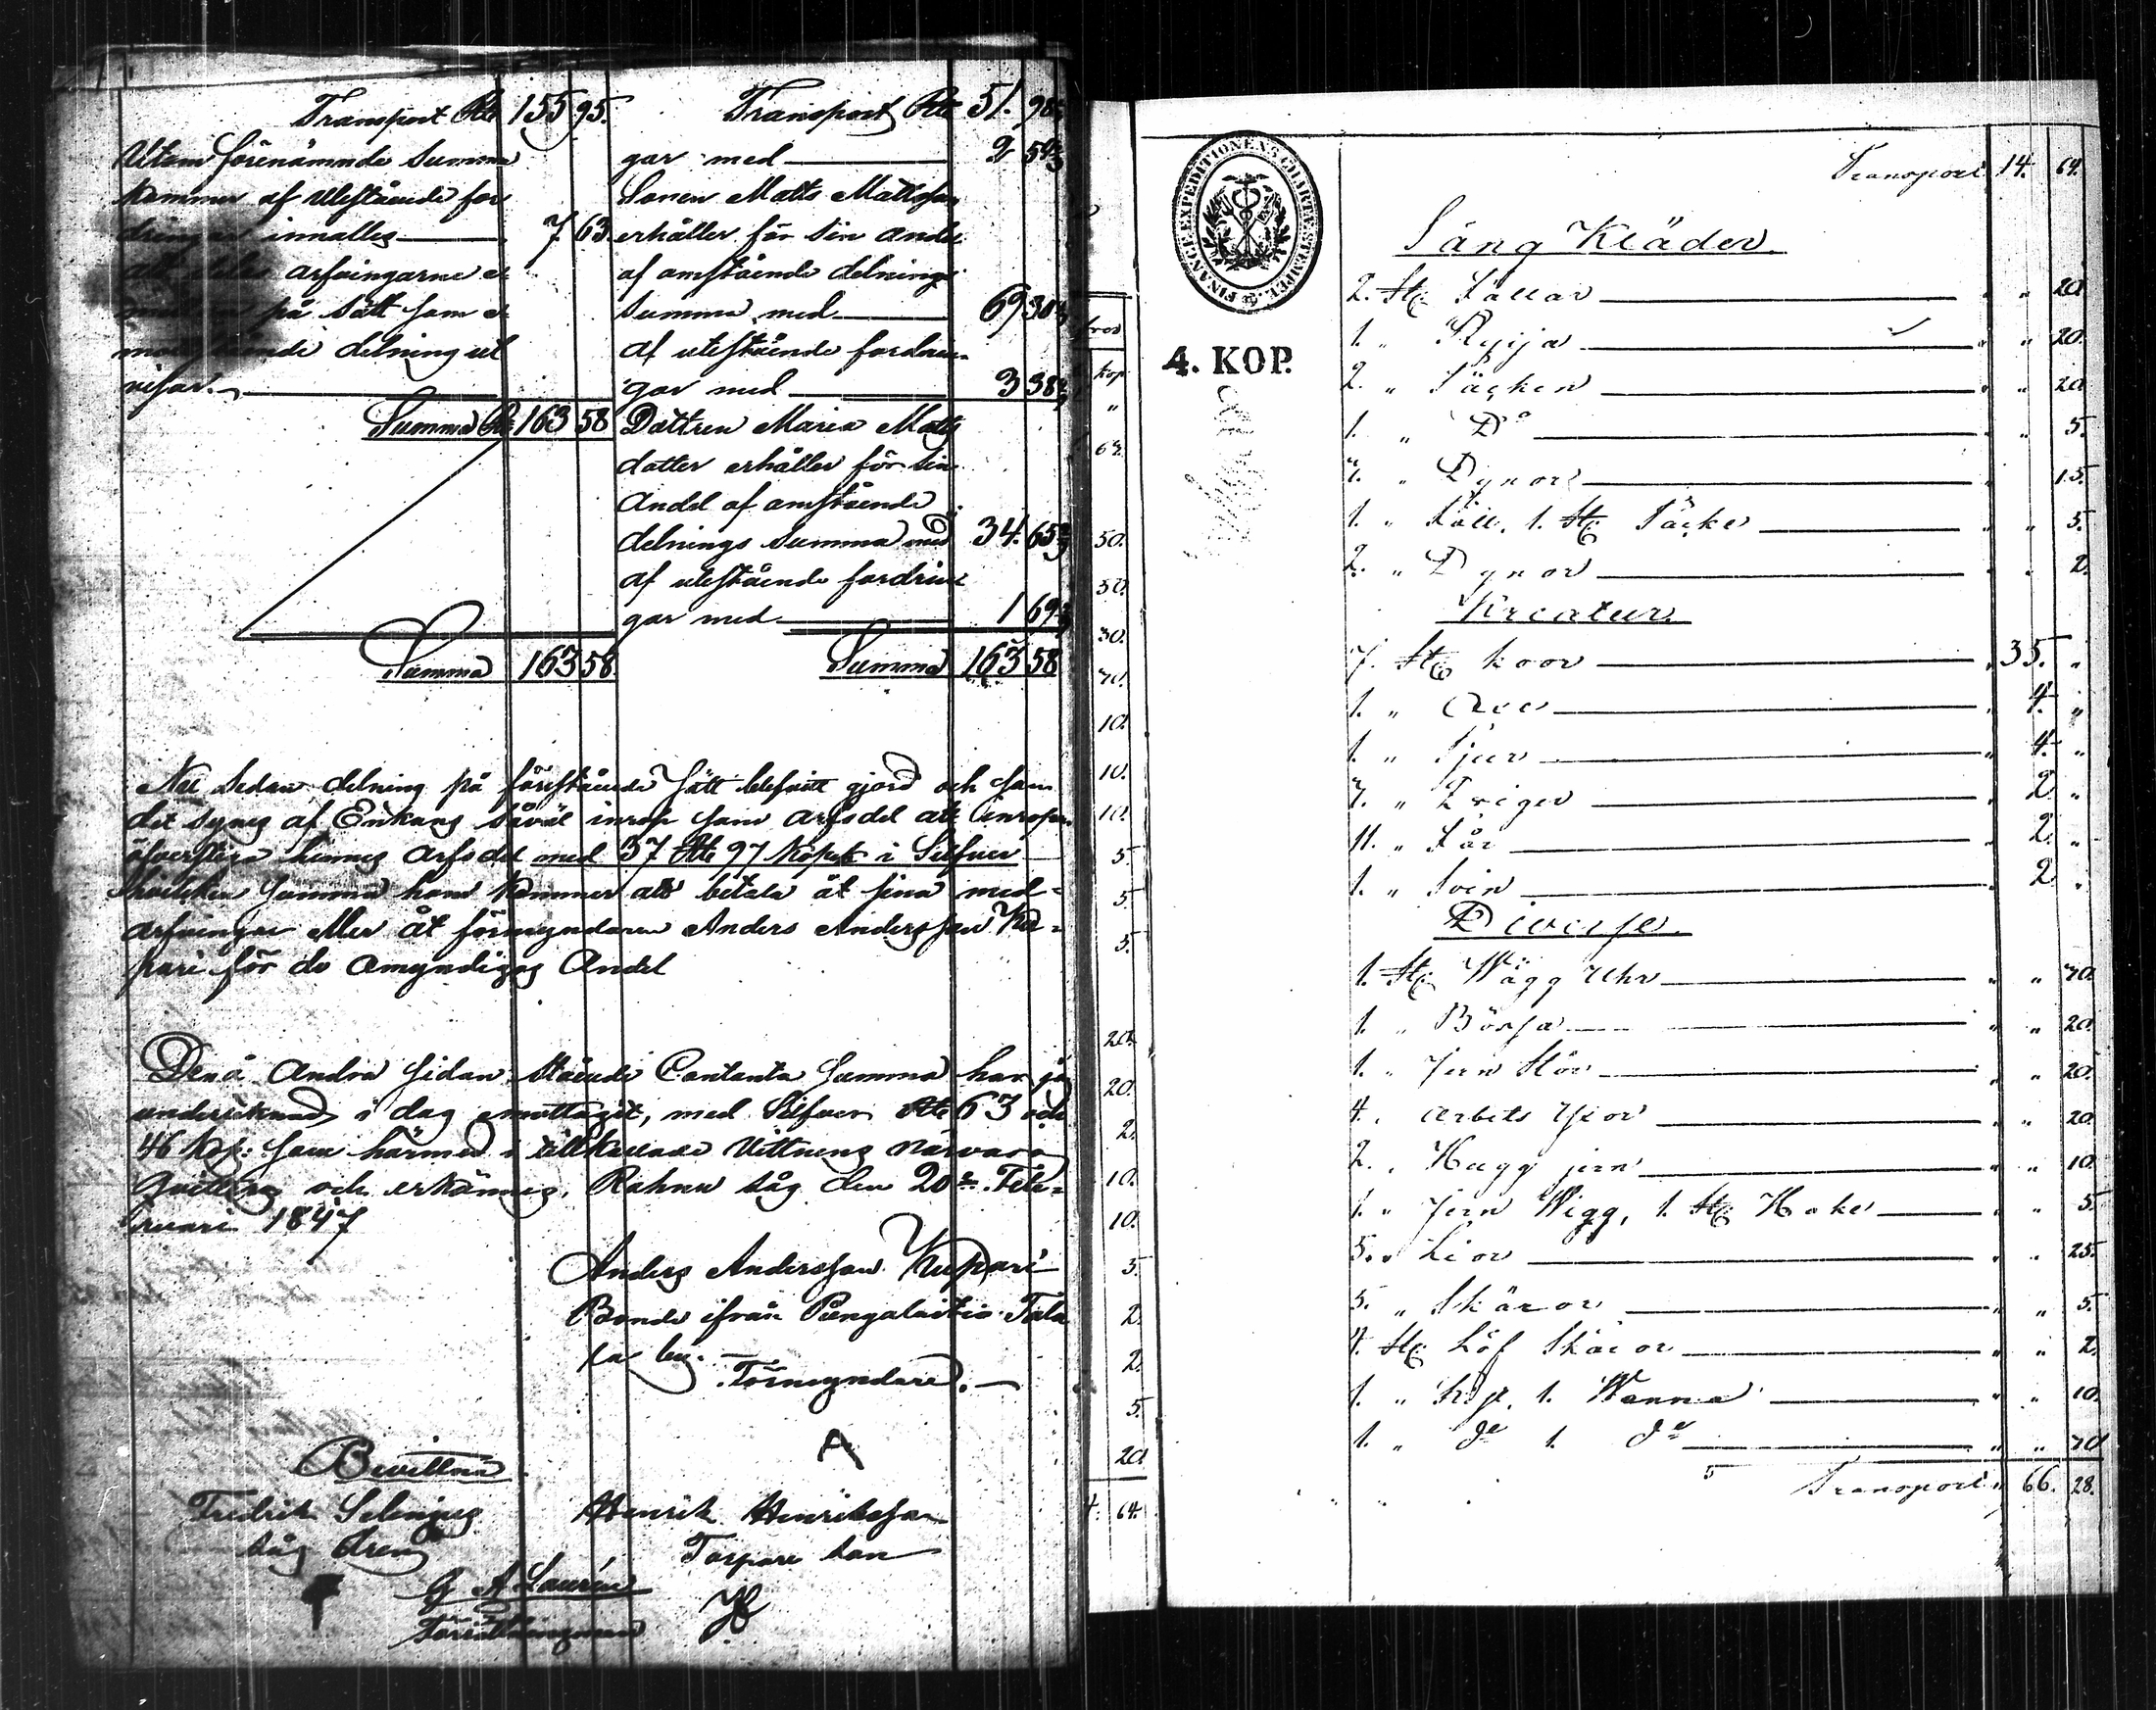 Transport Rbl 155 95.
Utom förenämnde Summa
kommer af Utestående for
dringar innalles 7 63.
arfvingarne e
på sätt som e
delning ut
visar.
Summa Rbl 163 58
Summa 163 58.
Transport Rbl 51. 98
gar med 2 59
Sonen Matts Mattsson
erhåller för sin andel
af omstående delnings
summa med 69 30
af utestående fordrin
gar med 3 38
Dottren Maria Matts
dotter erhåller för sin
Andel af omstående
delnings summa med 34. 65
af utestående fordrin
gar med 1 69
Summa 163 58
Nu sedan delning på förestående sätt blifvitt gjord och som
det synes af Enkans såväl inrop som Arfsdel att
öfverstiga hennes Arfsdel med 37 Rbl 97 kopek i Silfver
hvilken summa hon kommer att betala åt sina med-
arfvingar eller åt förmyndaren Anders Andersson Ku-
pari för de Omyndigas Andel
Den å Andra sidan Stående Contanta Summa har jag
undertecknad i dag emottagit, med Silfver Rbl 63 och
46 Kop: som härmed i tillkallade Vittnens närvaro
qvitteras och erkännes, Rahnu såg den 20de Feb-
ruari 1847
Anders Andersson Kupari
Bonde ifrån Pengalaitio
by.
Förmyndare.
Bevittna
Fredrik
såg dreng
Henrik Henriksson
Torpare son
G A Laurén
Förrättningsman
50.
50.
30.
70.
10.
10.
10.
5.
5.
5.
20.
20.
2.
10.
10.
5.
2.
2.
5.
20.
4. 64.
FINANCE EXPEDITIONENS CHARTÆ STEMPEL
4. KOP.
Transport 14. 64.
Säng Kläder.
2. St: Fällar " " 20.
1. " Ryija " " 20.
2. " Täcken " " 20.
1. " Do " " 5.
7. " Dynor " " 15.
1. " Fäll, 1. St: Täcke " " 5.
2. " Dynor " " 2.
Kreatur.
7. St: koor " 35. "
1. " Oxe " 4. "
1. " Tjur " 4. "
7. " Qvigor " 2. "
11. " Får " 2. "
1. " Svin " 2. "
Diverse.
1. St: Wägg Uhr " " 70.
1. " Bössa " " 20.
1. " Jern Stör " " 20.
4. " Arbets Yxor " " 20.
2. " Hugg jern " " 10.
1. " Jern Wigg, 1. St: Hake " " 5.
5. " Lior " " 25.
5. " Skäror " " 5.
4. St: Löf Skäror " " 2.
1. " Kista, 1. Wanna " " 10.
1. " do 1. do " " 70
Transport " 66. 28.